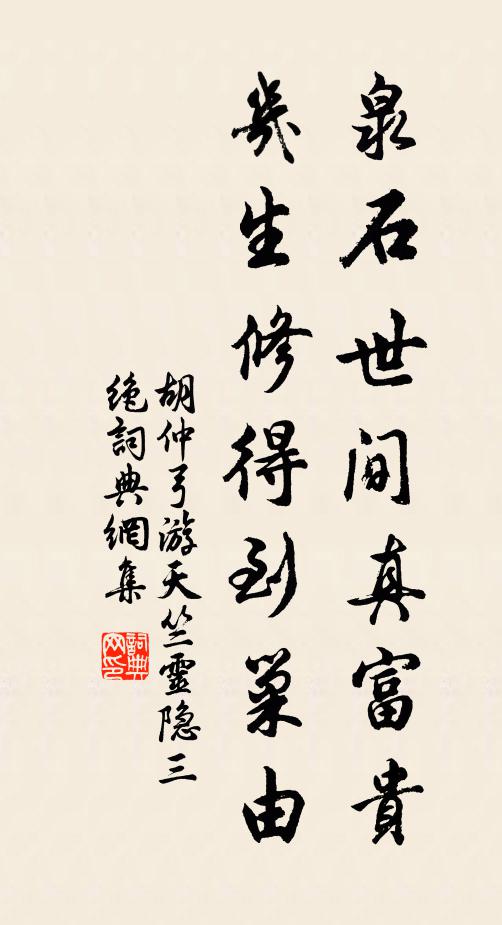 泉石世间真富貴
幾生修得到巢由
胡仲弓游天竺靈隐三
绝詞典網集
詞典网印